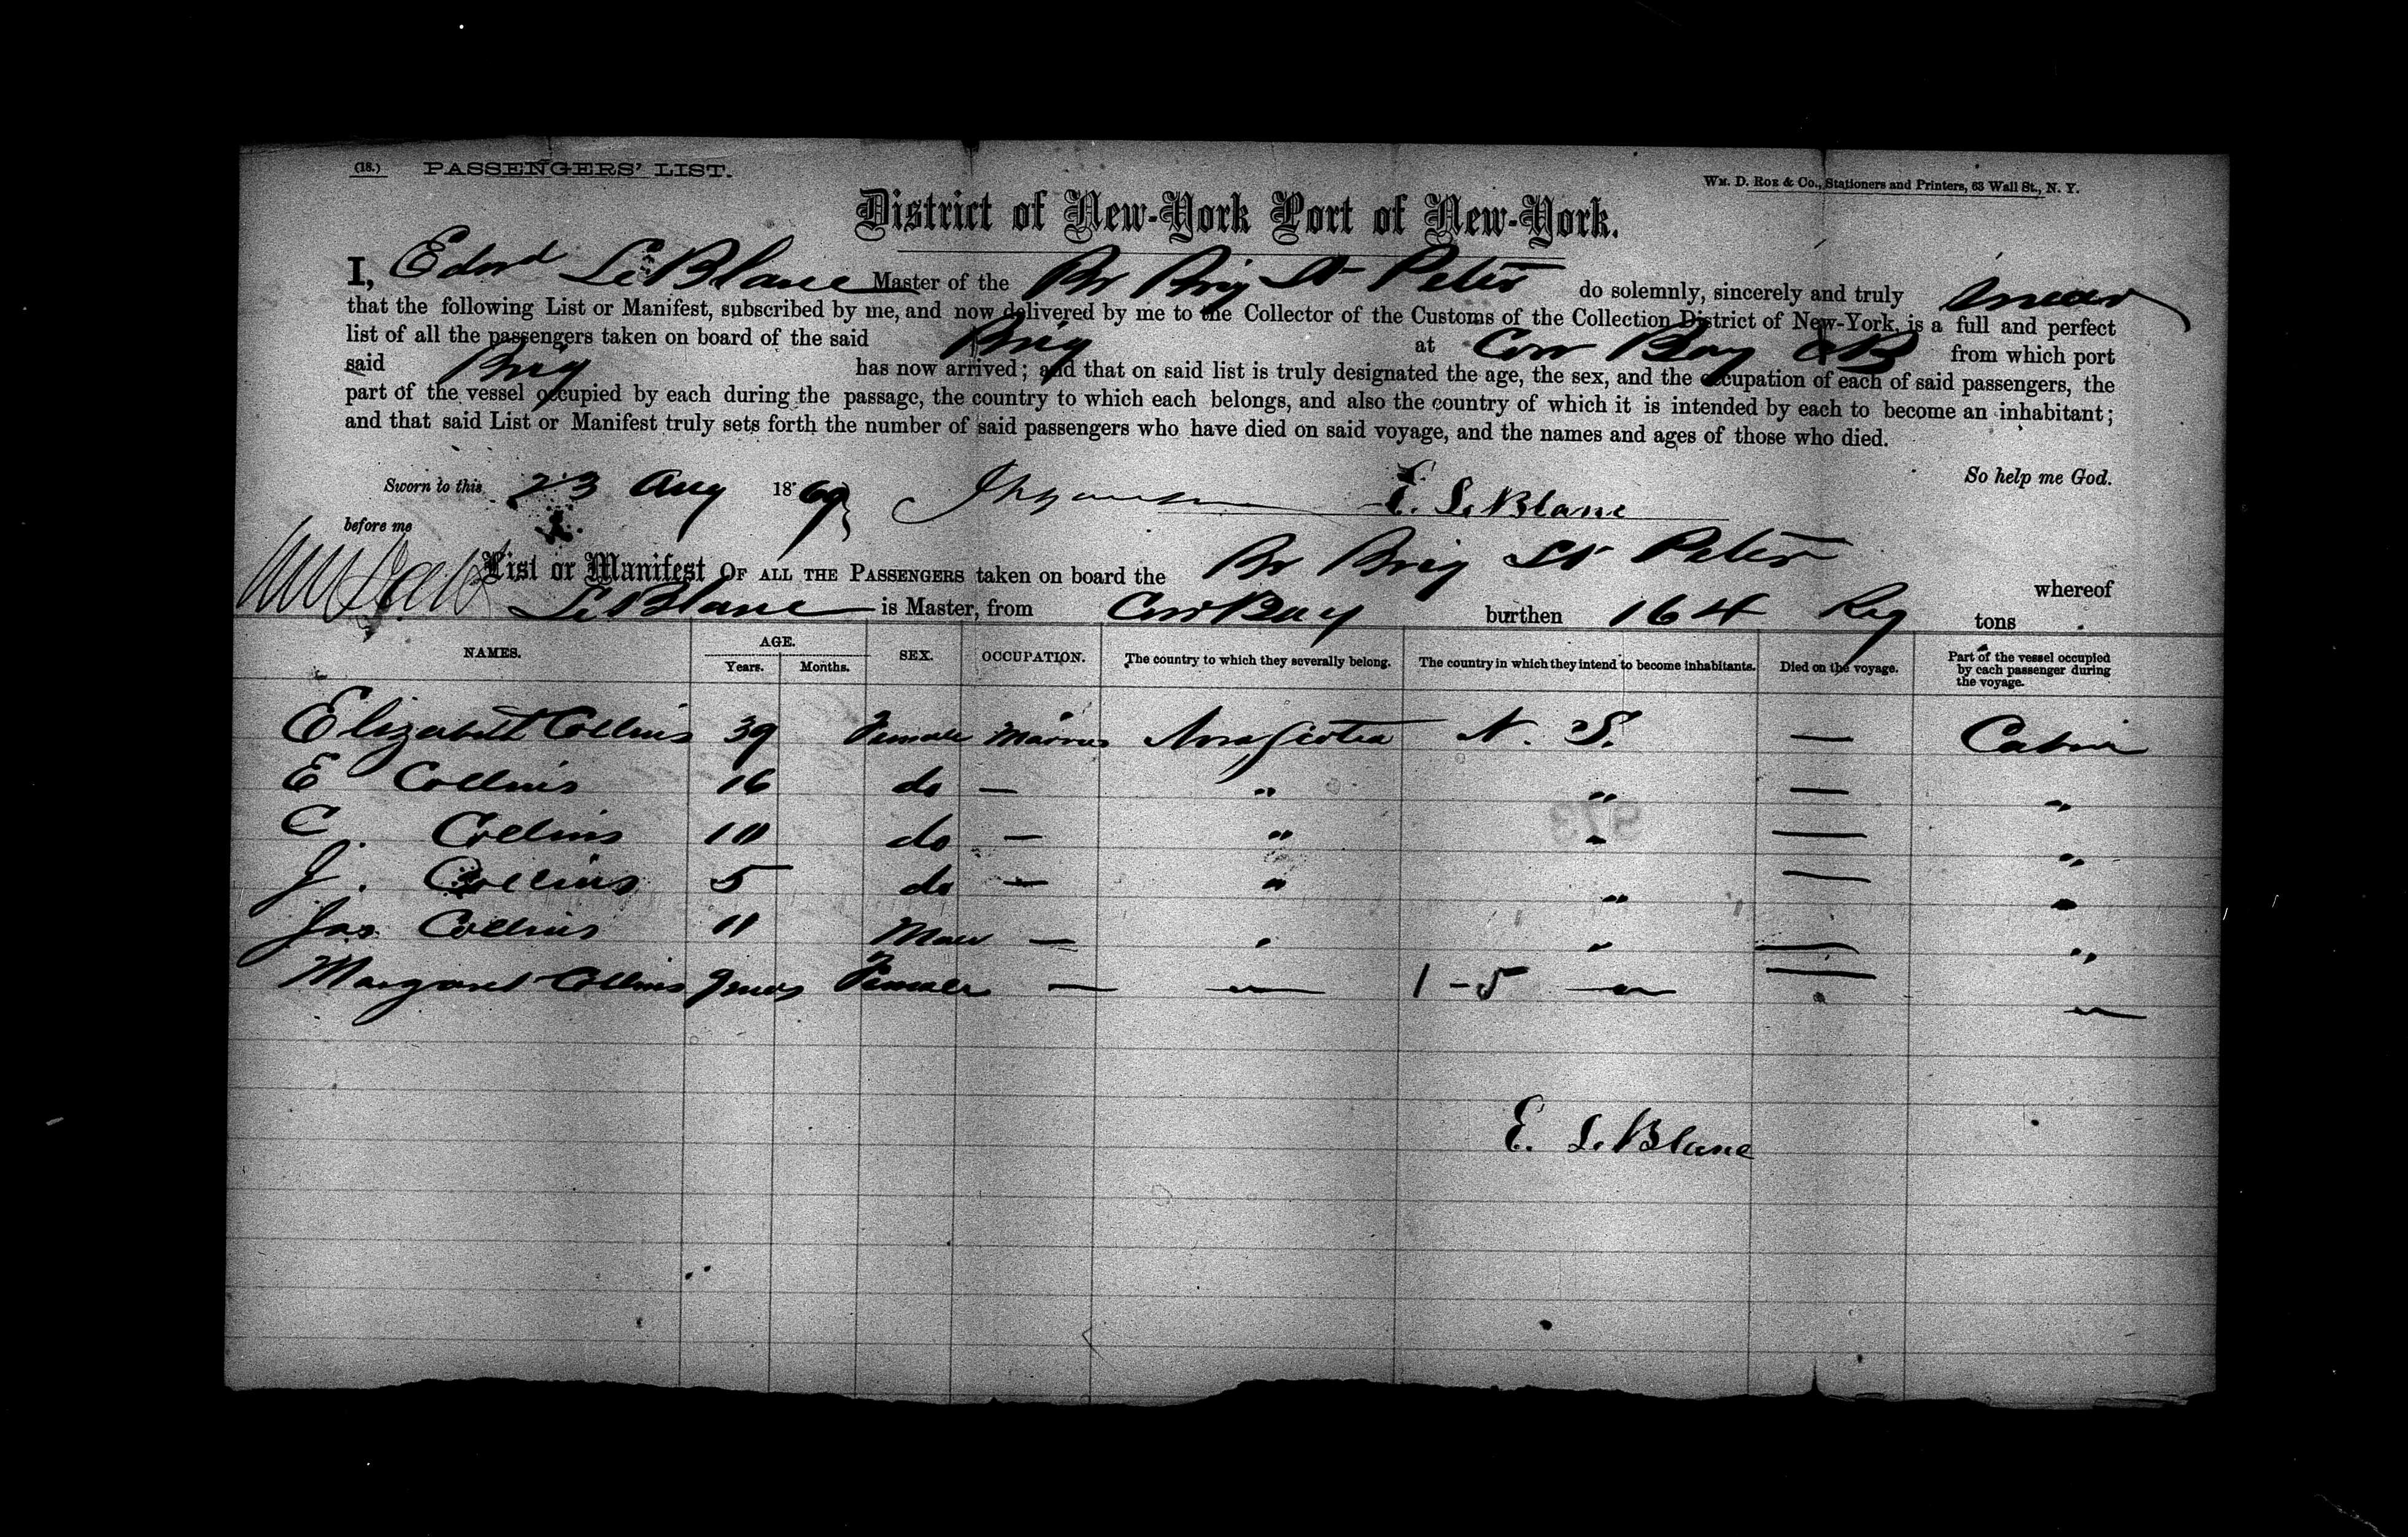 (18.) PASSENGERS' LIST.
Wm. D. Roe & Co., Stationers and Printers, 63 Wall St., N. Y.
District of New-York Port of New-York.
I, Edwd LeBlanc Master of the Br Brig St Peter do solemnly, sincerely and truly swear
that the following List or Manifest, subscribed by me, and now delivered by me to the Collector of the Customs of the Collection District of New-York, is a full and perfect
list of all the passengers taken on board of the said Brig at Cow Bay CB from which port
said Brig has now arrived; and that on said list is truly designated the age, the sex, and the occupation of each of said passengers, the
part of the vessel occupied by each during the passage, the country to which each belongs, and also the country of which it is intended by each to become an inhabitant;
and that said List or Manifest truly sets forth the number of said passengers who have died on said voyage, and the names and ages of those who died.
So help me God.
Sworn to this 23 Aug 1869 E. LeBlanc
before me
List or Manifest OF ALL THE PASSENGERS taken on board the Br Brig St Peter whereof
LeBlanc is Master, from Cow Bay burthen 164 Reg tons
NAMES. AGE. Years. Months. SEX. OCCUPATION. The country to which they severally belong. The country in which they intend to become inhabitants. Died on the voyage. Part of the vessel occupied by each passenger during the voyage.
Elizabeth Collins 39 Female Nova Scotia N. S. — Cabin
E Collins 16 do — " " — "
C. Collins 10 do — " " — "
J. Collins 5 do — " " — "
Jas Collins 11 Male — " " — "
Margaret Collins 9 mos Female — " 1-5 " — "
E. LeBlanc